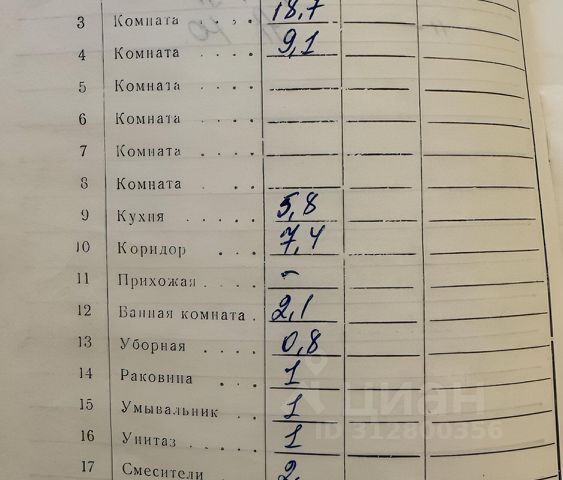 3 Комната . . . . 18,7
4 Комната . . . . 9,1
5 Комната . . . . —
6 Комната . . . . —
7 Комната . . . . —
8 Комната . . —
9 Кухня . . . . . 5,8
10 Коридор . . . 7,4
11 Прихожая . . . . -
12 Ванная комната . 2,1
13 Уборная . . . . 0,8
14 Раковина . . . 1
15 Умывальник . . 1
16 Унитаз . . . . . 1
17 Смесители . . 2
циан
ID 312800356